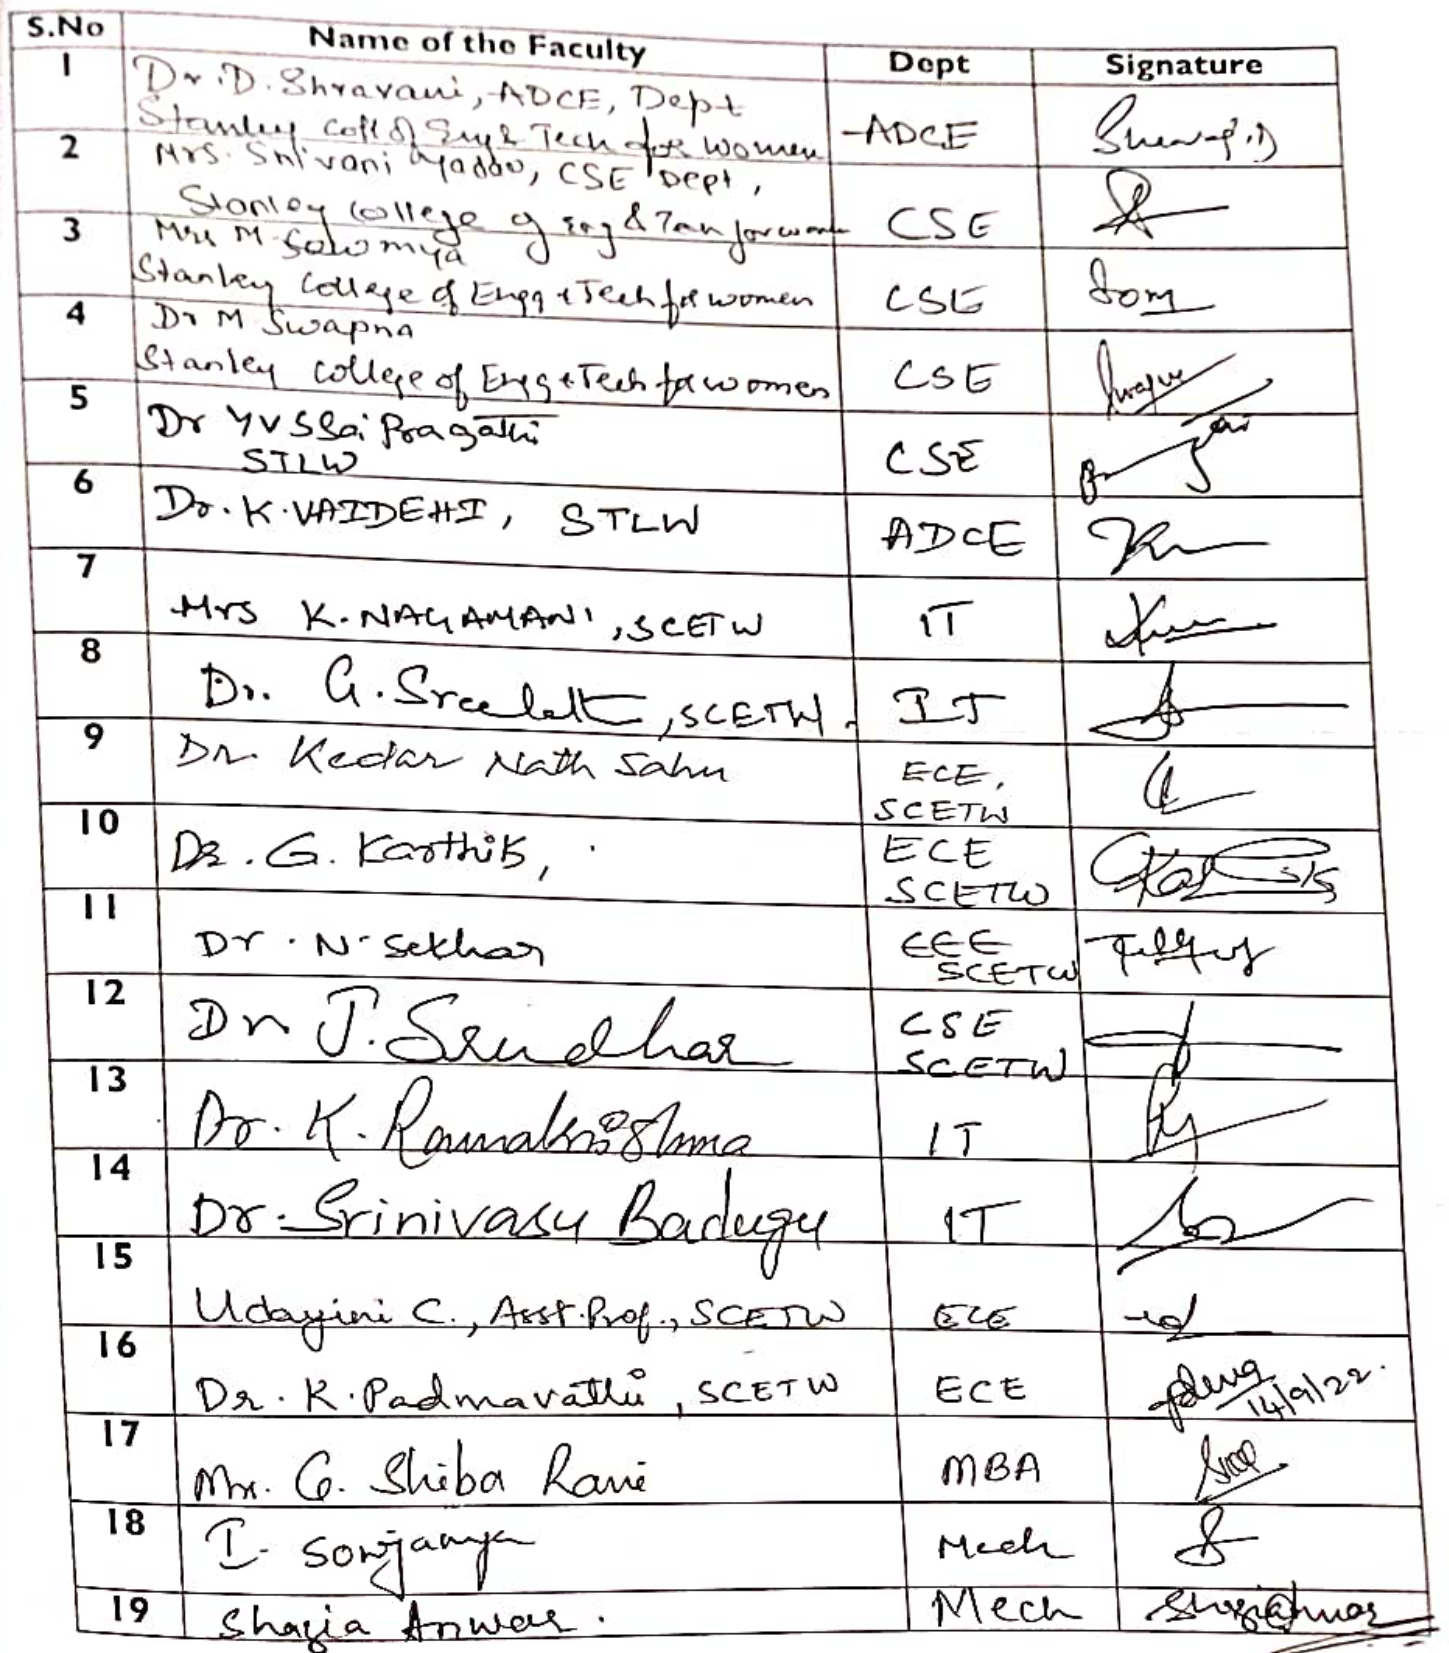 S.No Name of the Faculty Dept Signature
1 Dr. D. Shravani, ADCE, Dept
Stanley Coll of Eng & Tech for women -ADCE
2 Mrs. Shivani Yadav, CSE Dept,
Stanley College of Eng & Tech for women CSE
3 Mrs M Sowmya
Stanley College of Engg & Tech for women CSE Som
4 Dr M Swapna
Stanley College of Engg & Tech for women CSE Swapna
5 Dr YVSSai Pragathi
STLW CSE
6 Dr. K. VAIDEHI, STLW ADCE
7 Mrs K. NAGAMANI, SCETW IT
8 Dr. G. Sreelatha, SCETW. IT
9 Dr. Kedar Nath Sahu ECE,
SCETW
10 Dr. G. Karthik, ECE
SCETW
11 Dr. N. Sekhar EEE
SCETW
12 Dr J. Sridhar CSE
SCETW
13 Dr. K. Ramakrishna IT
14 Dr. Srinivasu Badugu IT
15 Udayini C., Asst. Prof., SCETW ECE
16 Dr. K. Padmavathi, SCETW ECE 14/9/22.
17 Mrs. G. Shiba Rani MBA
18 I. Sowjanya Mech
19 Shazia Anwar. Mech Shaziaanwar